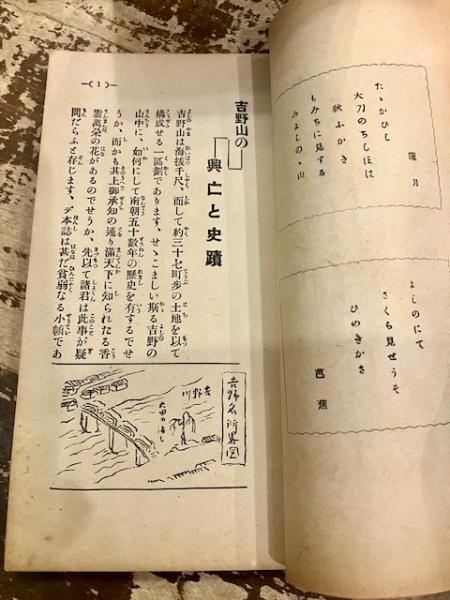 蓮月
たゝかひし
大刀のちしほは
秋ふかき
もみちに見する
みよしのゝ山
よしのにて
さくら見せうそ
ひのきかさ
芭蕉
―(1)―
吉野山の
興亡と史蹟
吉野山は海拔千尺、而して約三十七町步の土地を以て
構成せる一區劃であります、せゝこましい斯る吉野の
山中に、如何にして南朝五十數年の歷史を有するでせ
うか、而かも其上御承知の通り滿天下に知られたる香
雲萬朶の花があるのでせうか、先以て諸君は此事が疑
問だらふと存じます、デ本誌は甚だ貧弱なる小幀であ
吉野名所畧圖
吉野川